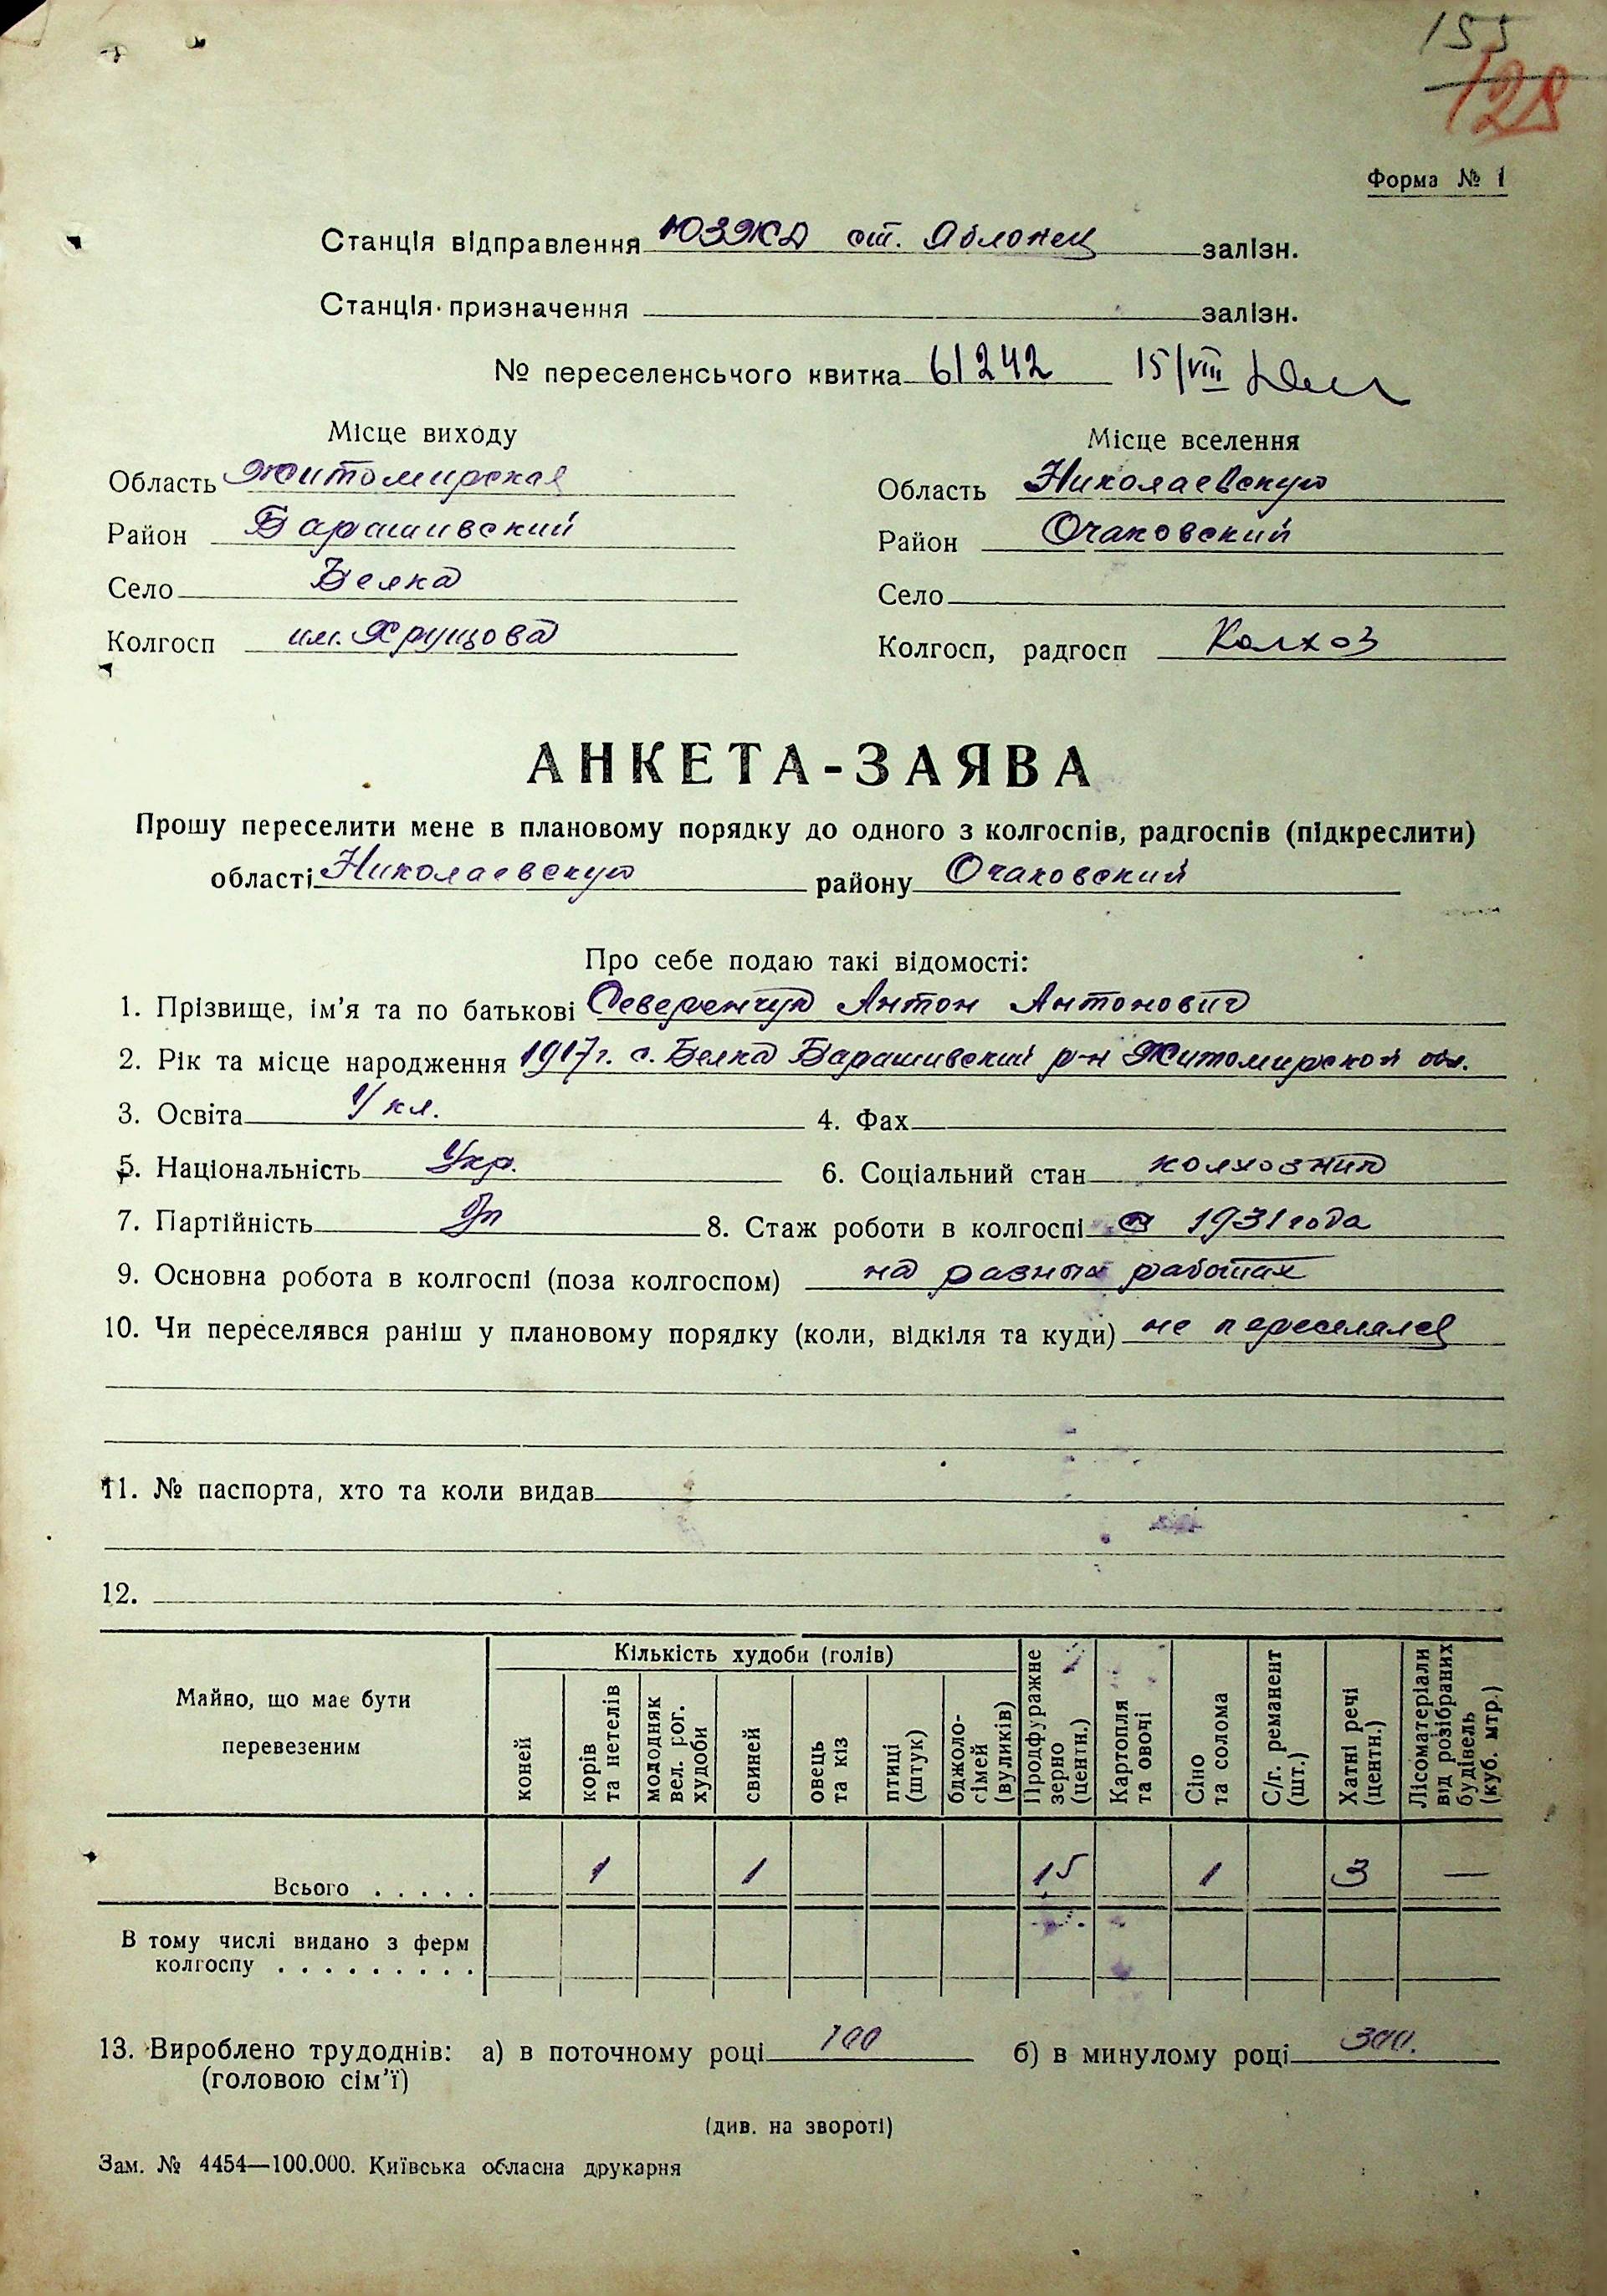 155
128
Форма № 1
Станція відправлення ЮЗЖД ст. Яблонец залізн.
Станція призначення залізн.
№ переселенсьчого квитка 61242 15/VIII
Місце виходу
Область Житомирская
Район Барашивский
Село Белка
Колгосп им. Хрущова
Місце вселення
Область Николаевскую
Район Очаковский
Село
Колгосп, радгосп Колхоз
АНКЕТА-ЗАЯВА
Прошу переселити мене в плановому порядку до одного з колгоспів, радгоспів (підкреслити)
області Николаевскую району Очаковский
Про себе подаю такі відомості:
1. Прізвище, ім'я та по батькові Северенчук Антон Антонович
2. Рік та місце народження 1917г. с. Белка Барашивский р-н Житомирской обл.
3. Освіта кл. 4. Фах
5. Національність Укр. 6. Соціальний стан колхозник
7. Партійність 8. Стаж роботи в колгоспі с 1931 года
9. Основна робота в колгоспі (поза колгоспом) на разных работах
10. Чи переселявся раніш у плановому порядку (коли, відкіля та куди) не переселялся
11. № паспорта, хто та коли видав
12.
Майно, що має бути перевезеним
Кількість худоби (голів)
коней
корів та нетелів
молодняк вел. рог. худоби
свиней
овець та кіз
птиці (штук)
бджоло-сімей (вуликів)
Продфуражне зерно (центн.)
Картопля та овочі
Сіно та солома
С/г. реманент (шт.)
Хатні речі (центн.)
Лісоматеріали від розібраних будівель (куб. мтр.)
Всього . . . . . 1 1 15 1 3 —
В тому числі видано з ферм
колгоспу . . . . . . . . .
13. Вироблено трудоднів: а) в поточному році 100 б) в минулому році 300.
(головою сім'ї)
(див. на звороті)
Зам. № 4454—100.000. Київська обласна друкарня